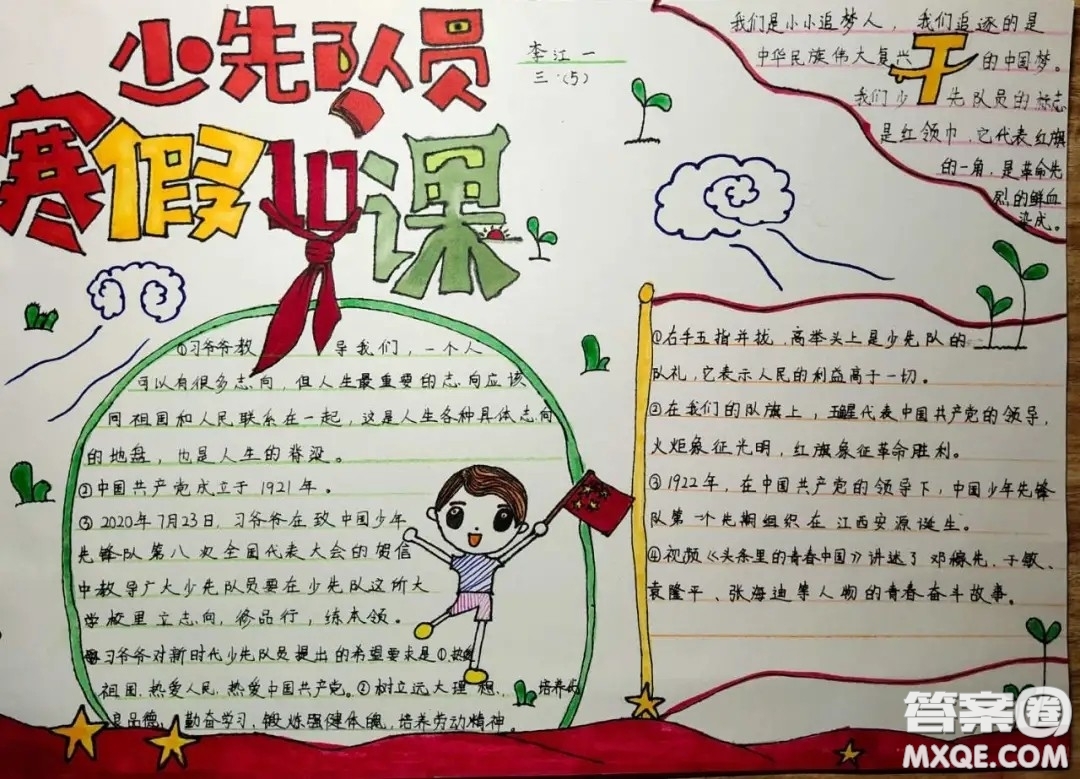 少先队员
寒假队课
李江一
三.(5)
我们是小小追梦人，我们追逐的是
中华民族伟大复兴的中国梦。
我们少先队员的标志
是红领巾，它代表红旗
的一角，是革命先
烈的鲜血
染成。
①习爷爷教导我们，一个人
可以有很多志向，但人生最重要的志向应该
同祖国和人民联系在一起，这是人生各种具体志向
的地盘，也是人生的脊梁。
②中国共产党成立于1921年。
③2020年7月23日，习爷爷在致中国少年
先锋队第八次全国代表大会的贺信
中教导广大少先队员要在少先队这所大
学校里立志向，修品行，练本领。
习爷爷对新时代少先队员提出的希望要求是①.热爱
祖国.热爱人民.热爱中国共产党。②树立远大理想、培养优
良品德，勤奋学习，锻炼强健体魄，培养劳动精神。
①右手五指并拢，高举头上是少先队的
队礼，它表示人民的利益高于一切。
②在我们的队旗上，五星代表中国共产党的领导，
火炬象征光明，红旗象征革命胜利。
③1922年，在中国共产党的领导下，中国少年先锋
队第一个先期组织在江西安源诞生。
④视频《头条里的青春中国》讲述了邓稼先、于敏、
袁隆平、张海迪等人物的青春奋斗故事。
答案圈
MXQE.COM